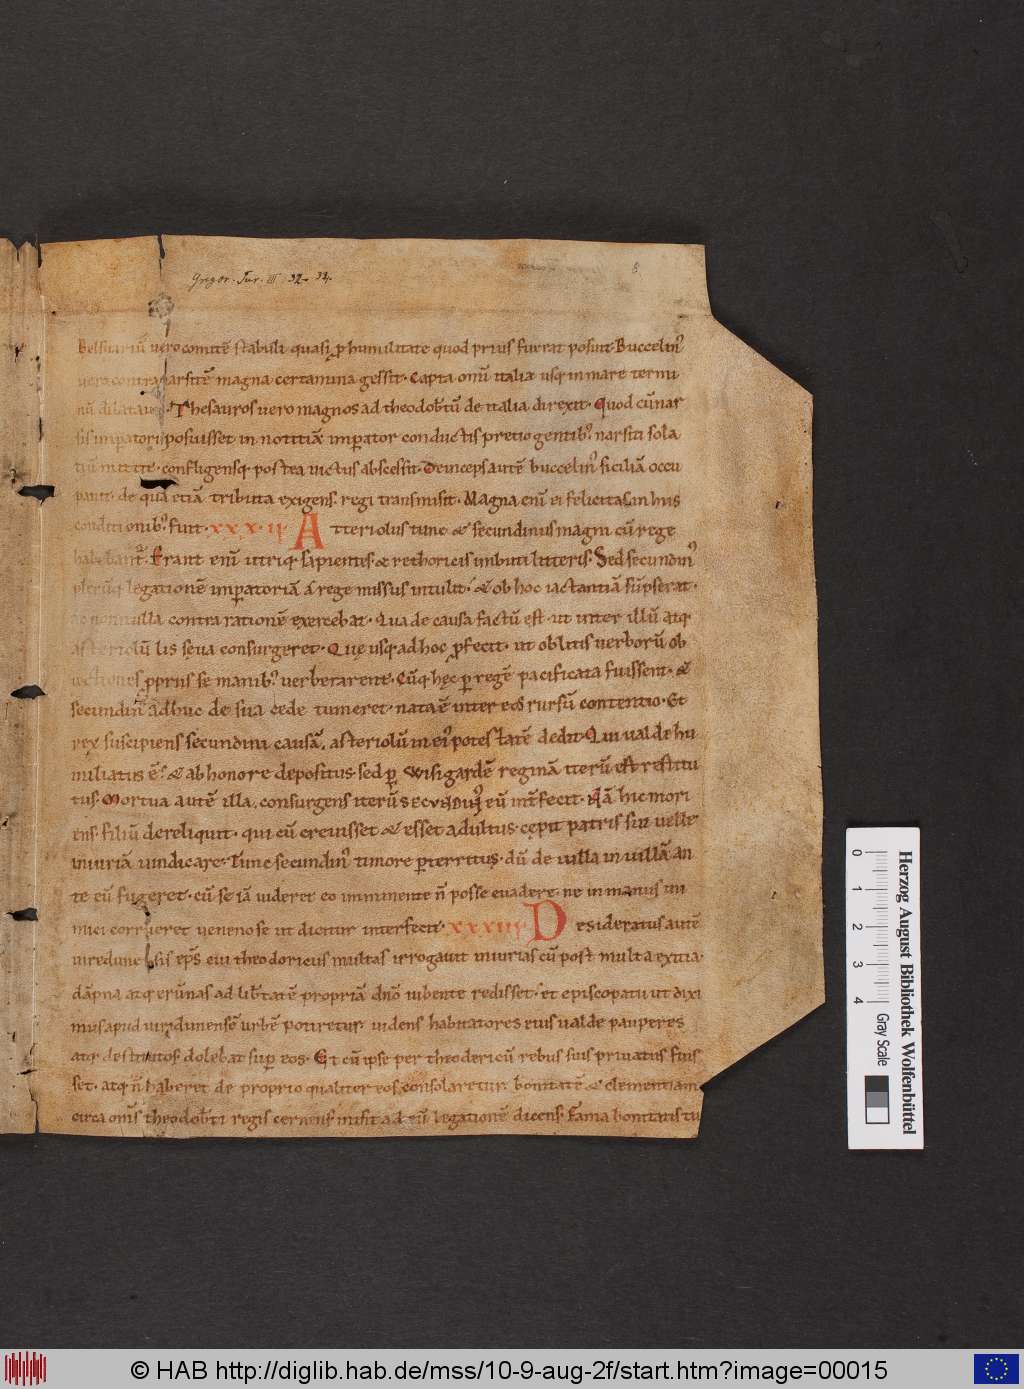 Gregor. Tur. III 32-34.
Belsuariũ uero comitẽ stabuli quasi ꝓ humilitate quod prius fuerat posuit. Buccelin᷒
uero contra narsitẽ magna certamina gessit. Capta omĩ italia usq in mare termi
nũ dilatauit. Thesauros uero magnos ad theodob̃tũ de italia direxit. Quod cũ nar
sis imꝑatori posuisset in notitiã imꝑator conductis pretio gentib᷒ narsiti sola
tiũ mittit. confligensq postea uictus abscessit. Deinceps autẽ buccelin᷒ siciliã occu
pauit. de qua etiã tributa exigens. regi transmisit. Magna enĩ ei felicitas in huis
conditionib᷒ fuit. xxxii A tteriolus tunc & secundinus magni cũ rege
habebant᷑. Erant enĩ utriq sapientes. & rethoricis inbuti litteris. Sed secundin᷒
plerũq legationẽ imꝑatoriã á rege missus intulit. & ob hoc iactantiã sũpserat.
ac nonnulla contra rationẽ exercebat. Qua de causa factũ est. ut inter illũ atq
asteriolũ lis seua consurgeret. Quę usq adhoc ꝓfecit. ut oblitis uerborũ ob
iectiones ꝓpriis se manib᷒ uerberarent. Cũq hęc ꝑ regẽ pacificata fuissent. &
secundin᷒ adhuc de sua cede tumeret. nata ẽ inter eos rursũ contentio. Et
rex suscipiens secundini causã. asteriolũ in ei᷒ potestatẽ dedit. Qui ualde hu
miliatus ẽ. & ab honore depositus. sed ꝑ wisigardẽ reginã iterũ est restitu
tus. Mortua autẽ illa. consurgens iterũ secundin᷒ eũ int̃fecit. Nã hic mori
ens. filiũ dereliquit. qui cũ creuisset & esset adultus. cępit patris sui uelle
iniuriã uindicare. Tunc secundin᷒ timore ꝑterritus. dũ de uilla in uillã an
te eũ fugeret. cũ se iã uideret eo imminente ñ posse euadere. ne in manus ini
mici corrueret ueneno se ut dicitur interfecit. xxxiiii D esideratus autẽ
uiredunensis ep̃s. cui theodoricus multas irrogauit iniurias cũ post multa exitia.
dãpna atq erũnas ad lib̃tatẽ propriã dño iubente redisset. et episcopatu ut dixi
mus apud uirdunensẽ urbẽ potiretur. uidens habitatores eius ualde pauperes
atq destitutos dolebat suꝑ eos. Et cũ ipse per theodericũ rebus suis priuatus fuis
set. atq ñ haberet de proprio qualiter eos consolaretur. bonitatẽ & clementiam
circa om̃s theodob̃ti regis cernens. misit ad eũ legationẽ dicens. Fama bonitatis tu
0
1
2
3
4
Gray Scale
Herzog August Bibliothek Wolfenbüttel
© HAB http://diglib.hab.de/mss/10-9-aug-2f/start.htm?image=00015